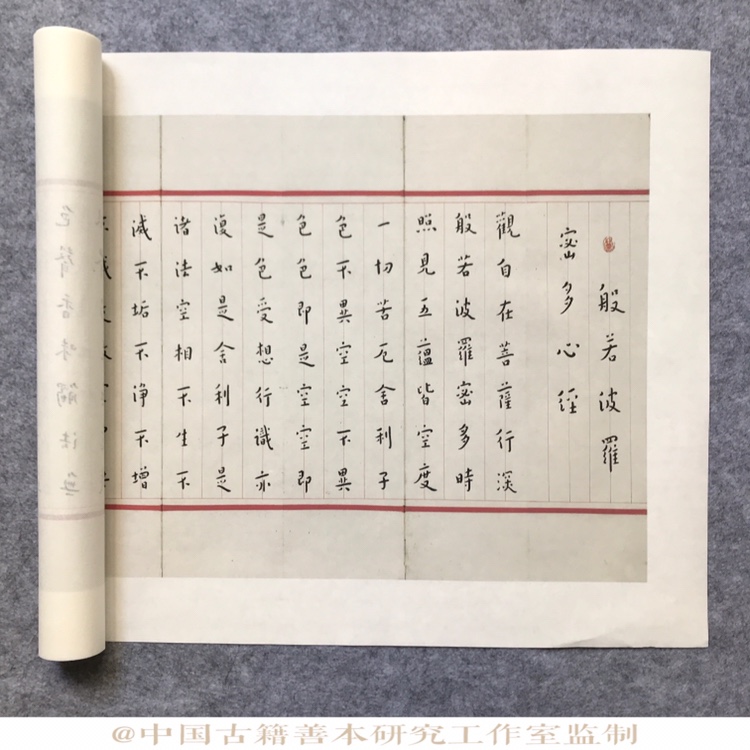 般若波羅
密多心經
觀自在菩薩行深
般若波羅密多時
照見五蘊皆空度
一切苦厄舍利子
色不異空空不異
色色即是空空即
是色受想行識亦
復如是舍利子是
諸法空相不生不
滅不垢不淨不增
@中国古籍善本研究工作室监制